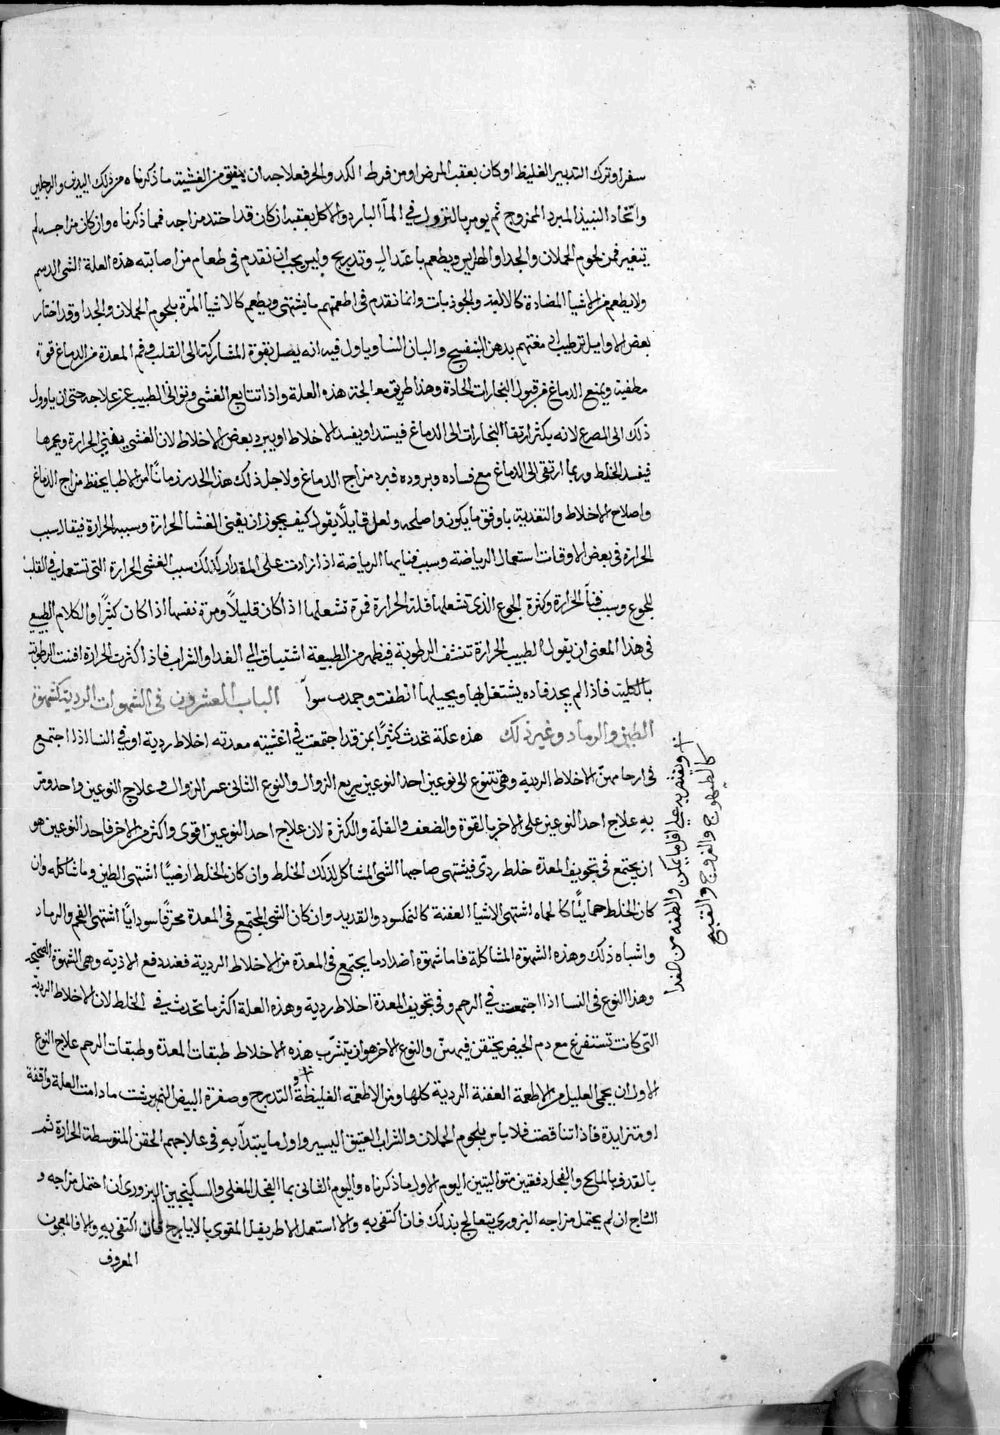 سفر او ترك التدبير الغليظ او كان بعقب المرض او من فرط الكد والحر فعلاجه ان يفيق من الغشية ما ذكرناه من ذلك اليدين والرجلين
واتخاد النبيذ المبرد الممزوج ثم يومر بالنزول في المآ البارد والاكل بعقبه ان كان قد احتد مزاجه فمما ذكرناه وان كان مزاجه لم
يتغير فمن لحوم الحملان والجدا والهرايس ويطعم باعتدال وتدريج وليس يجب ان نقدم في طعام من اصابته هذه العلة الشي الدسم
ولا يطعم من الاشيا المضادة كالالية والجوذبات وانما نقدم في اطعمتهم ما يشتهى ويطعم كالاشيا المرة بلحوم الحملان والجدا وقد اختار
بعض الاوايل ترطيب ادمغتهم بدهن البنفسج والبان النسا وياول فيه انه يصل بقوة المشاركة الى القلب وفم المعدة من الدماغ قوة
مطفية ويمنع الدماغ من قبول البخارات الحادة وهذا طريق معالجة هذه العلة واذا تتابع الغشى وتوانى الطبيب عن علاجه حتى ان ياوول
ذلك الى الصرع لانه يكثر ارتقا البخارات الى الدماغ فيستد او يفسد الاخلاط او يبرد بعض الاخلاط لان الغشى يفني الحرارة ويحرها
فيفسد الخلط وربما ارتقى الى الدماغ مع فساده وبروده فبرد مزاج الدماغ ولاجل ذلك هذا الحد امر الاطبا بحفظ مزاج الدماغ
واصلاح الاخلاط والتغدية باوفق ما يكون واصلحه ولعل قايلاً يقول كيف يجوز ان يفنى الغشا الحرارة وسببه الحرارة فيقال سبب
الحرارة في بعض الاوقات استعمال الرياضة وسبب فنايها الرياضة اذا زادت على المقدار كذلك سبب الغشى الحرارة التي تستعمل في القلب
للجوع وسبب فنآ الحرارة وكثرة الجوع الذي تشعلها قلة الحرارة فمرة تشعلها اذا كان قليلاً ومرة نفسها اذا كان كثيرًا والكلام الطبيعي
في هذا المعنى ان يقول الطبيب الحرارة تنشف الرطوبة فيظهر من الطبيعة اشتياق الي الغدا والشراب فاذا كثرت الحرارة افنت الرطوبة
بالكلية فاذا لم يجد فاده يشتغل بها ويحيلها انطفت وجمدت سوآ الباب العشرون في الشهوات الردية كشهوة
الطين والرماد وغير ذلك هذه علة تحدث كثيرًا بمن قد اجتمعت في اغشية معدته اخلاط ردية او في النسا اذا اجتمع
في ارحامهن الاخلاط الردية وهي تتنوع الى نوعين احد النوعين سريع الزوال والنوع الثاني عسر الزوال وعلاج النوعين واحد ويتر
به علاج احد النوعين على الاخر بالقوة والضعف والقلة والكثرة لان علاج احد النوعين اقوى واكثر من الاخر فاحد النوعين هو
ان يجتمع في تجويف المعدة خلط ردي فيشتهى صاحبها الشي المشاكل لذلك الخلط وان كان الخلط ارضيًا اشتهى الطين وما شاكله وان
كان الخلط حمايئًا كالحماه اشتهى الاشيا العفنة كالنمكسود والقديد وان كان الشي المجتمع في المعدة محرقًا سوداياً اشتهى الفحم والرماد
واشباه ذلك وهذه الشهوة المشاكلة فاما شهوة اضداد ما يجتمع في المعدة من الاخلاط الردية فعند دفع الاذية وهي الشهوة الصحيحة
وهذا النوع في النسا اذا اجتمعت في الرحم وفي تجويف المعدة اخلاط ردية وهذه العلة اكثر ما تحدث في الخلط لان الاخلاط الردية
التي كانت تستفرغ مع دم الحيض يحتقن فيهن والنوع الاخر هو ان يتشرب هذه الاخلاط طبقات المعدة وطبقات الرحم علاج النوع
الاول ان يحمى العليل من الاطعمة العفنة الردية كلها ومن الاطعمه الغليظة و التدرج وصفرة البيض النيمبرشت ما دامت العلة واقفة
او متزايدة فاذا تناقصت فلا باس بلحوم الحملان والشراب العتيق اليسير واول ما يبتدآ به في علاجهم الحقن المتوسطة الحرارة ثم
بالقدف بالمالح والفجل دفعتين متواليتين اليوم الاول ما ذكرناه واليوم الثاني بما الفجل المغلى والسكنجبين البزوري ان احتمل مزاجه و
الشاج ان لم يحتمل مزاجه البزوري يتعالج بذلك فان اكتفى به والا استعمل الاطريفل المقوى بالايارج فان اكتفى به والا فالمعجون
المعروف
ونقتصر به على اقل ما يمكن والطفه من غدا
كالطيهوج والفروج والقبج